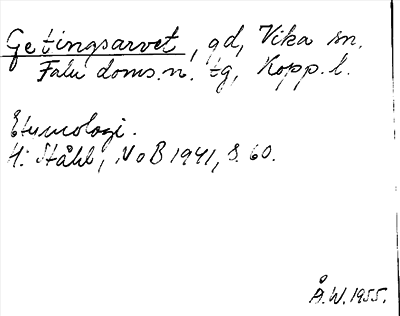 Getingsarvet, gd, Vika sn.
Falu doms.n. tg, Kopp. l.
Etymologi.
H. Ståhl, NoB 1941, S. 60.
Å.W. 1955.